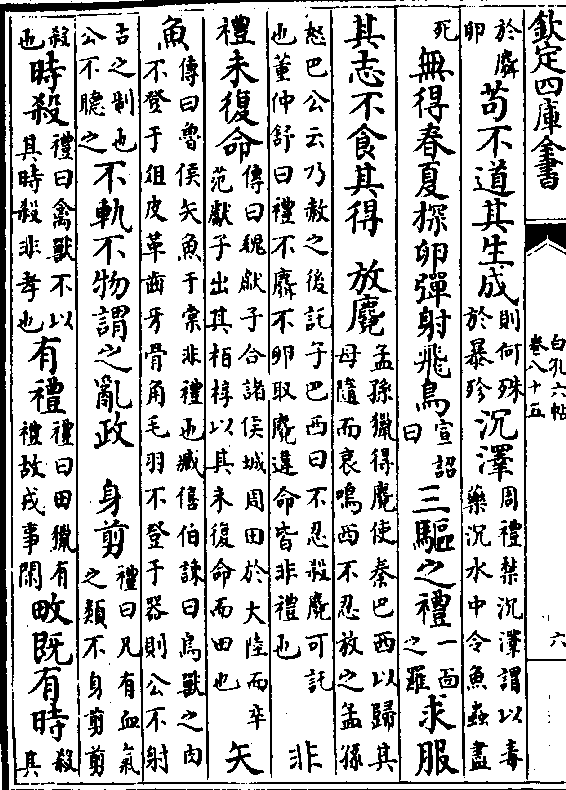 欽定四庫全書
白孔六帖
卷八十五
六
於麛卵苟不道其生成則何殊於暴殄沉澤周禮禁沉澤謂以毒藥沉水中令魚蟲盡
死無得春夏探卵彈射飛鳥宣詔曰三驅之禮一面之羅求服
其志不食其得放麑孟孫獵得麑使秦巴西以歸其母隨而哀鳴西不忍放之孟孫
怒巴公云乃赦之後託子巴西曰不忍殺麑可託也董仲舒曰禮不麛不卵取麑違命皆非禮也非
禮未復命傳曰魏獻子合諸侯城周田於大陸而卒范獻子出其栢椁以其未復命而田也矢
魚傳曰魯侯矢魚于棠非禮也臧僖伯諫曰鳥獸之肉不登于俎皮革齒牙骨角毛羽不登于器則公不射
古之制也公不聽之不軌不物謂之亂政身剪禮曰凡有血氣之類不身剪剪
殺也時殺禮曰禽獸不以其時殺非孝也有禮禮曰田獵有禮故戎事閑畋既有時殺其